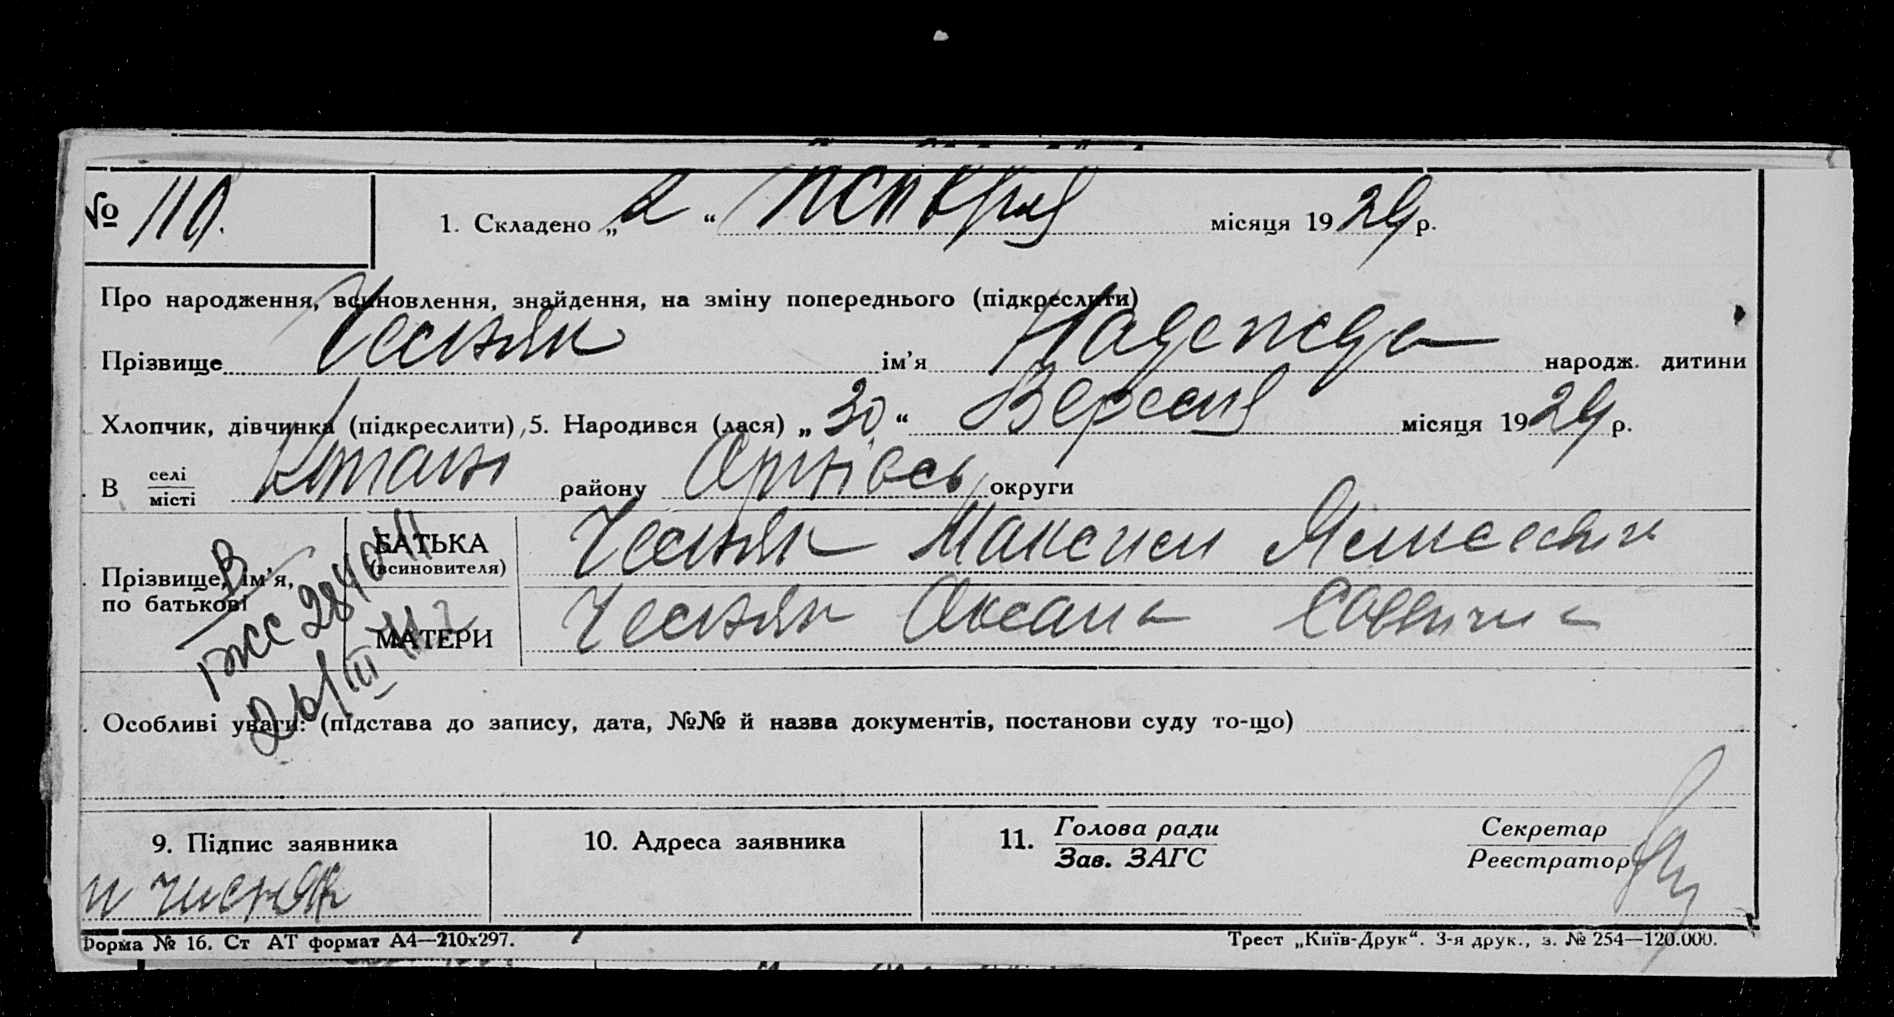 № 110. 1. Складено „ 2 “ жовтня місяця 1929 р.
Про народження, всиновлення, знайдення, на зміну попереднього (підкреслити)
Прізвище Чесняк ім'я Надежда народж. дитини
Хлопчик, дівчинка (підкреслити) 5. Народився (лася) „ 30 “ Вересня місяця 1929 р.
В селі
місті району округи
Прізвище, ім'я,
по батькові
БАТЬКА
(всиновителя)
Чесняк Максим
МАТЕРИ
Чесняк Оксана
В
26/III
Особливі уваги: (підстава до запису, дата, №№ й назва документів, постанови суду то-що)
9. Підпис заявника 10. Адреса заявника 11. Голова ради Секретар
Зав. ЗАГС Реєстратор
Форма № 16. Ст АТ формат А4—210х297. Трест „Київ-Друк“. 3-я друк., з. № 254—120.000.